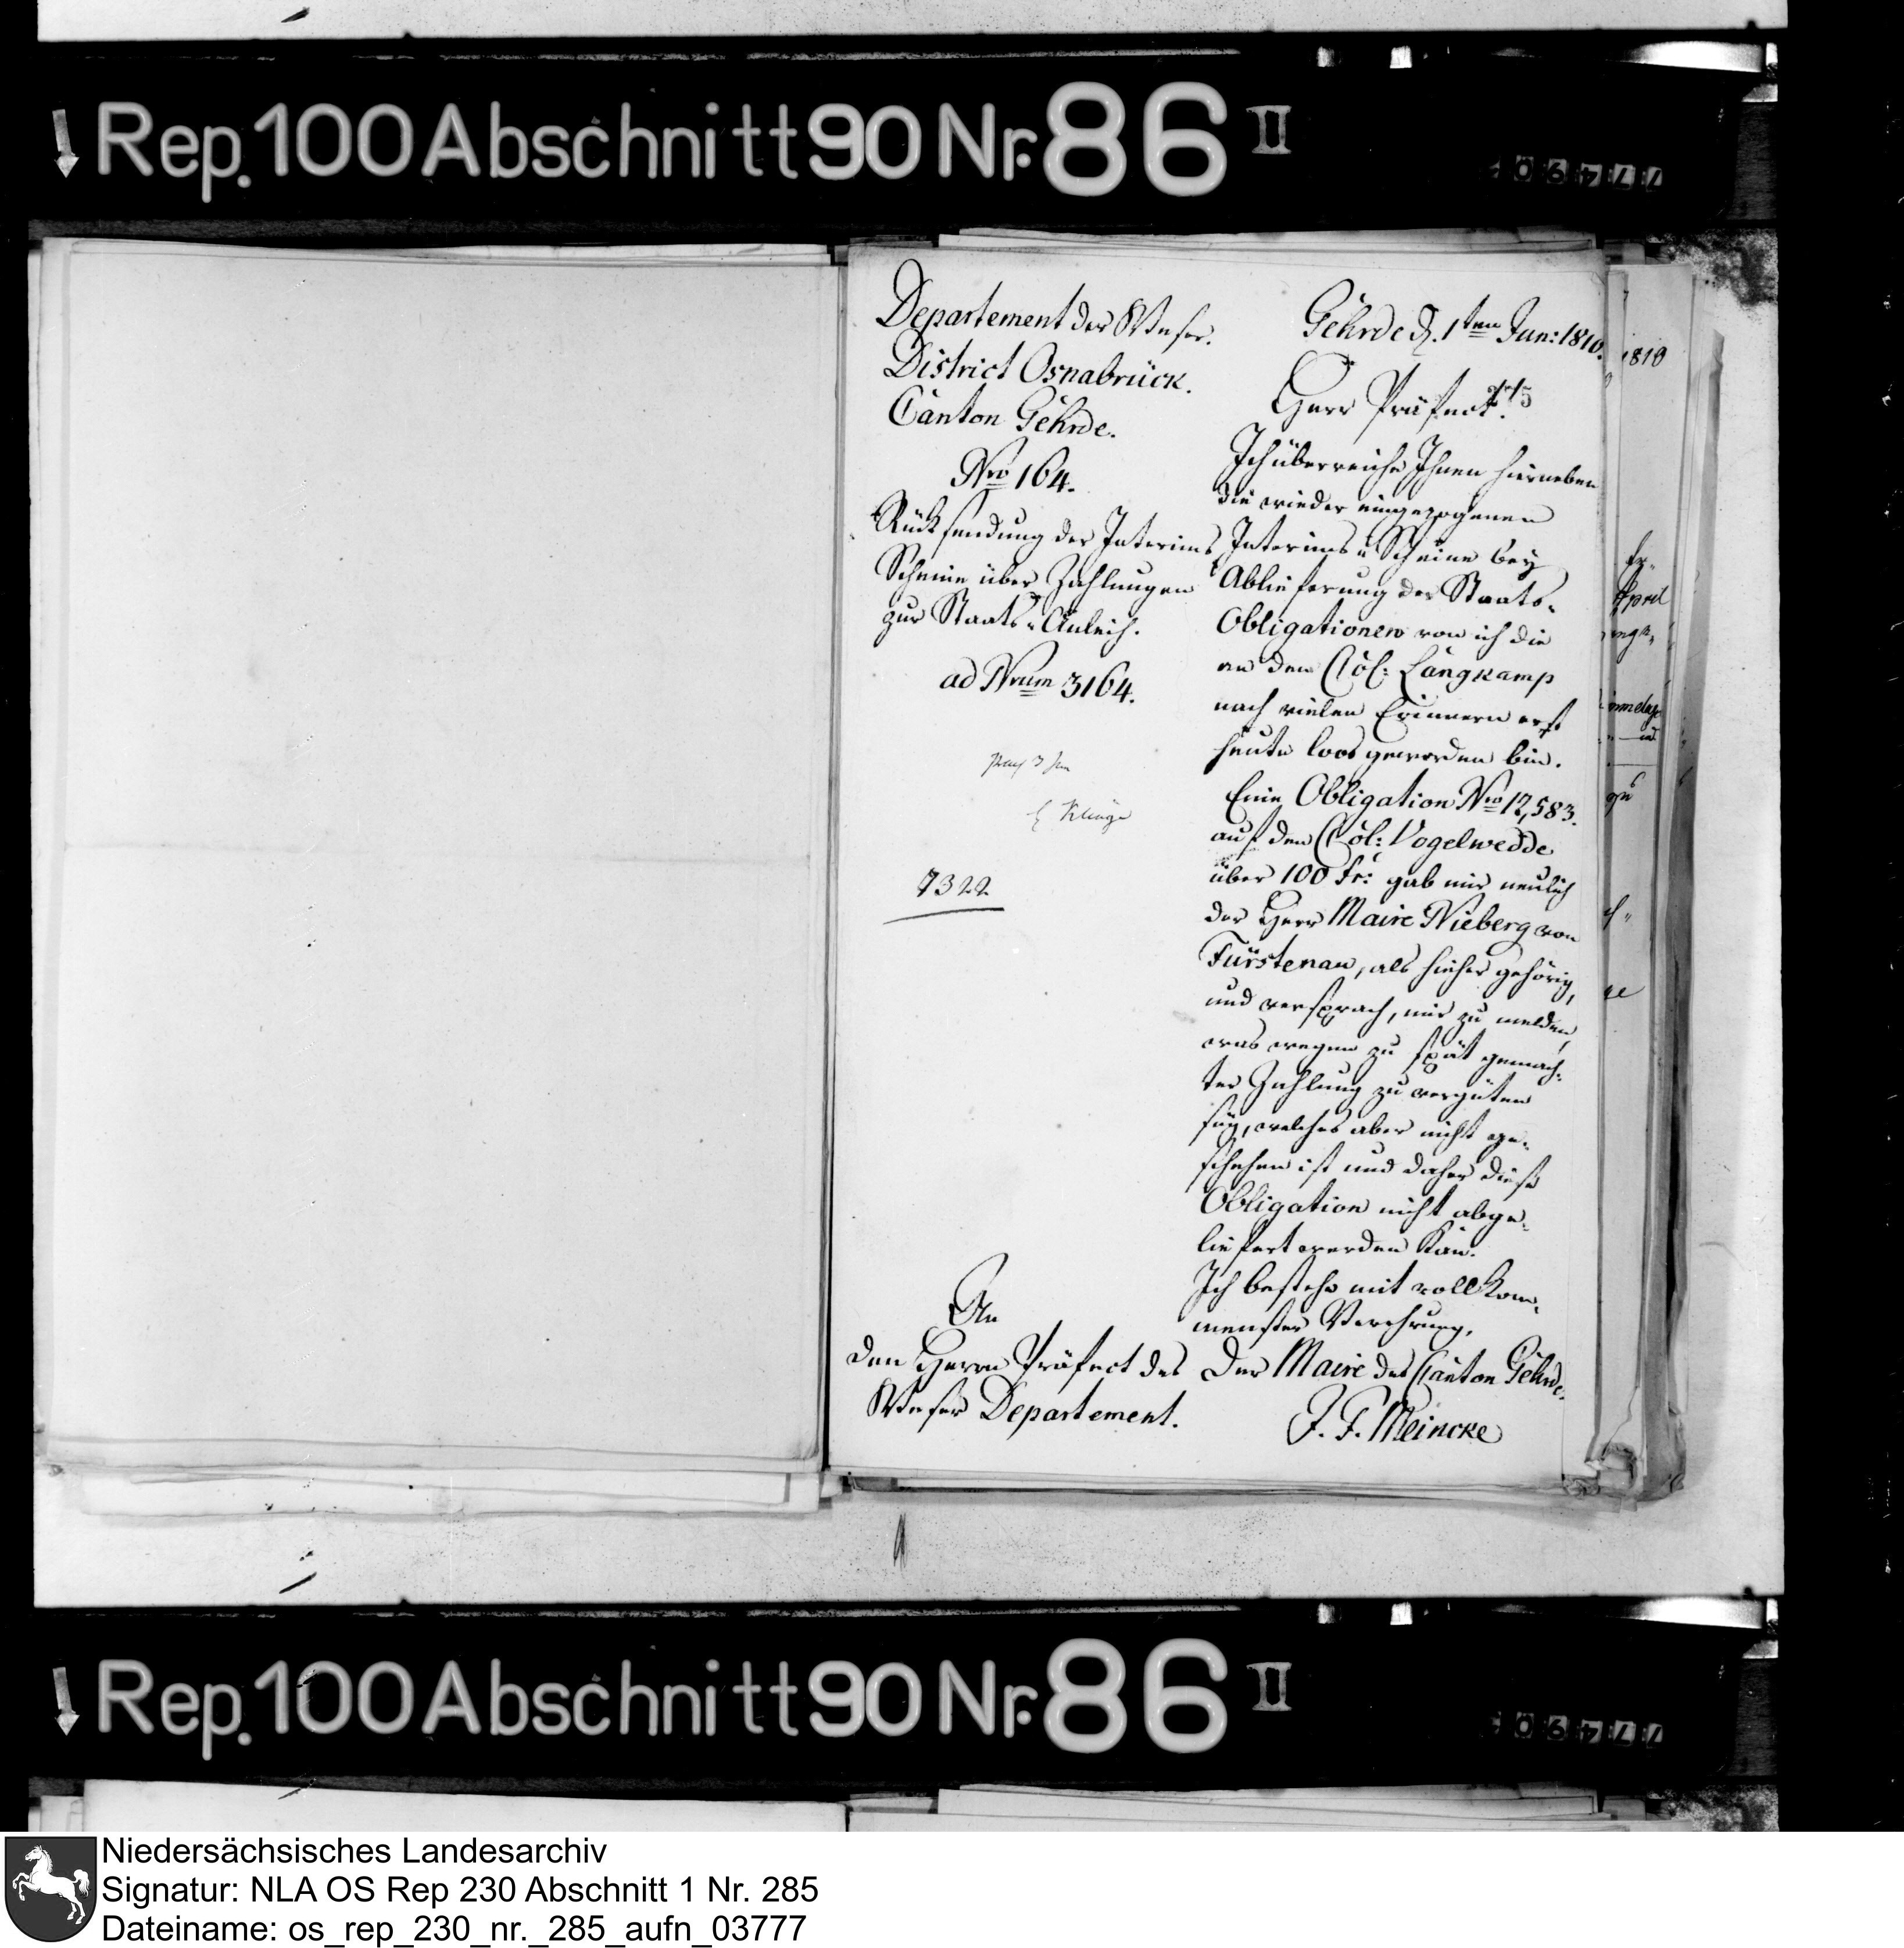 Rep. 100 Abschnitt 90 Nr. 86 II
Departement der Weser.
District Osnabrück.
Canton Gehrde.
Nro 164.
Rücksendung der Interims
Scheine über Zahlungen
zur Staats-Anleih.
ad Nrum 3164.
Klinge
7322
An
den Herrn Präfect des
Weser Departement.
Gehrde d. 1ten Jun: 1810.
175
Herr Präfect!
Ich überreiche Ihnen hierneben
die wieder eingezogenen
Interims-Scheine bey
Ablieferung der Staats-
Obligationen von ich die
an den Col: Langkamp
nach vielen Erinnern erst
heute loos geworden bin.
Eine Obligation Nro 12,583.
auf den Col: Vogelwedde
über 100 Fr: gab mir neulich
der Herr Maire Nieberg von
Fürstenau, als hieher gehörig,
und versprach, mir zu melden,
was wegen zu spät gemach-
ter Zahlung zu vergüten
sey, welches aber nicht ge-
schehen ist und daher diese
Obligation nicht abge-
liefert werden kan.
Ich bestehe mit vollkom-
menster Verehrung,
Der Maire des Canton Gehrde.
J. F. Meincke
1810
April
Rep. 100 Abschnitt 90 Nr. 86 II
Niedersächsisches Landesarchiv
Signatur: NLA OS Rep 230 Abschnitt 1 Nr. 285
Dateiname: os_rep_230_nr._285_aufn_03777